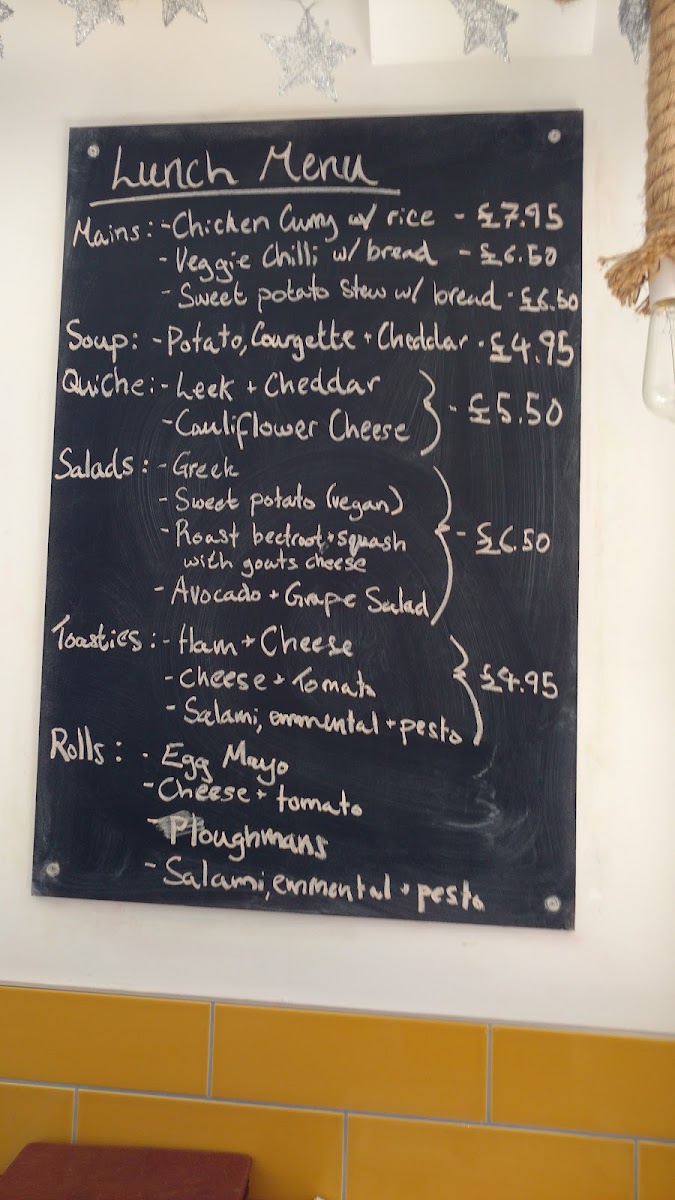 Lunch Menu
Mains:- Chicken Curry w/ rice - £7.95
- Veggie Chilli w/ bread - £6.50
- Sweet potato Stew w/ bread - £6.50
Soup: - Potato, Courgette + Cheddar - £4.95
Quiche:- Leek + Cheddar
- Cauliflower Cheese
- £5.50
Salads: - Greek
- Sweet potato (vegan)
- Roast beetroot + squash
with goats cheese
- Avocado + Grape Salad
- £6.50
Toasties:- Ham + Cheese
- Cheese + Tomato
- Salami, emmental + pesto
£4.95
Rolls: - Egg Mayo
- Cheese + tomato
- Ploughmans
- Salami, emmental + pesto